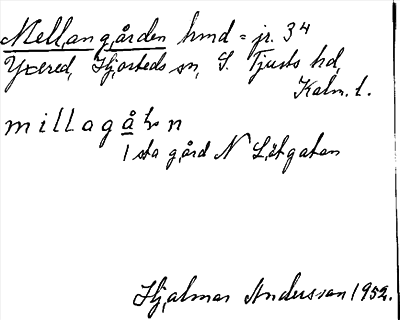 Mellangården hmd = jr. 3⁴
Yxered, Hjorteds sn, S. Tjusts hd,
Kalm. l.
millagå̱ɳ
1 sta gård N Sötgatan
Hjalmar Andersson 1952.